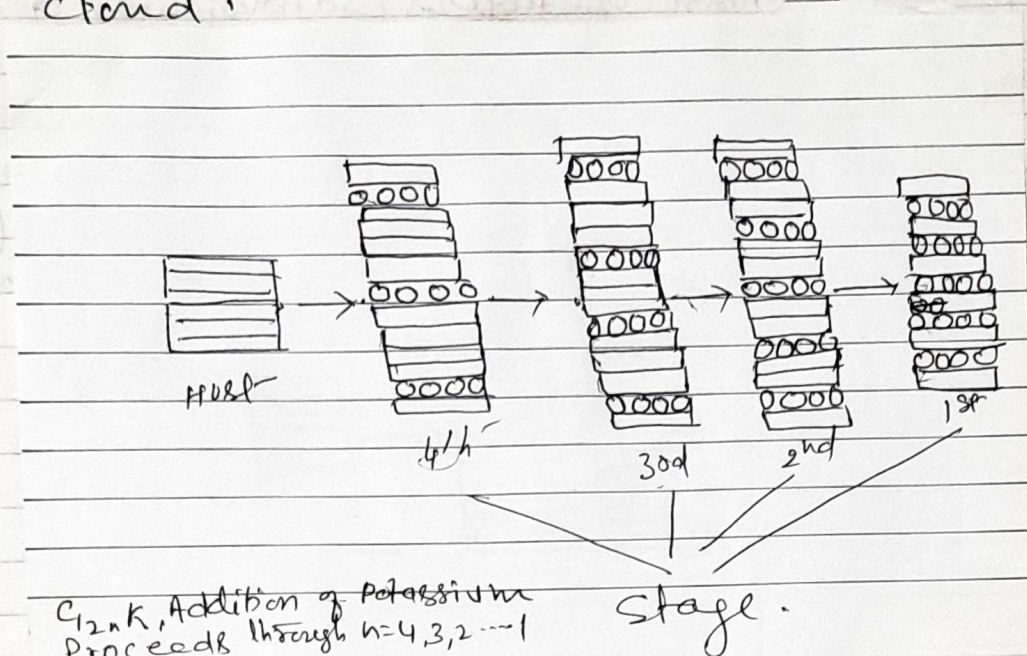 Cloud.
Host
4th
3rd
2nd
1st
Stage.
C12nK, Addition of Potassium
Proceeds through n=4,3,2----1